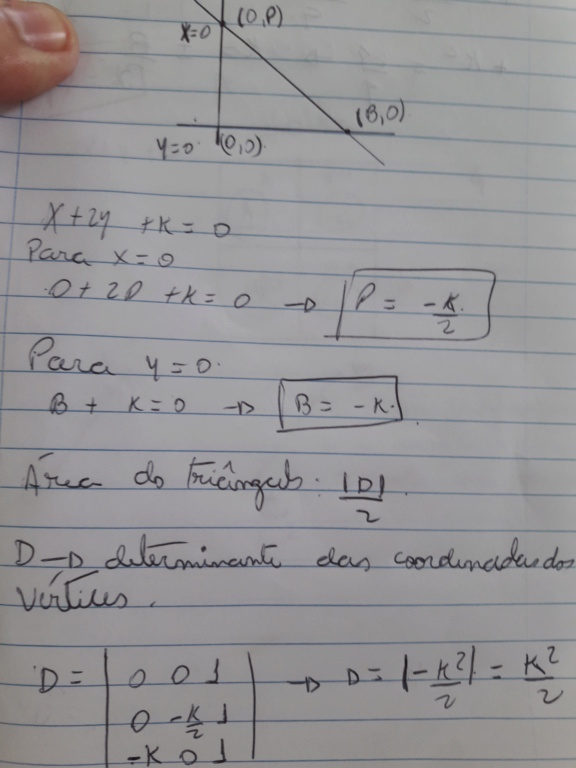 x=0 (0,P)
(B,0)
y=0 (0,0)
x+2y+k=0
Para x=0
0+2P+k=0 → P = -k/2
Para y=0.
B+k=0 → B = -k.
Área do triângulo: |D|/2.
D → determinante das coordenadas dos
vértices.
D = | 0 0 1 | → D = |-k²/2| = k²/2
| 0 -k/2 1 |
| -k 0 1 |